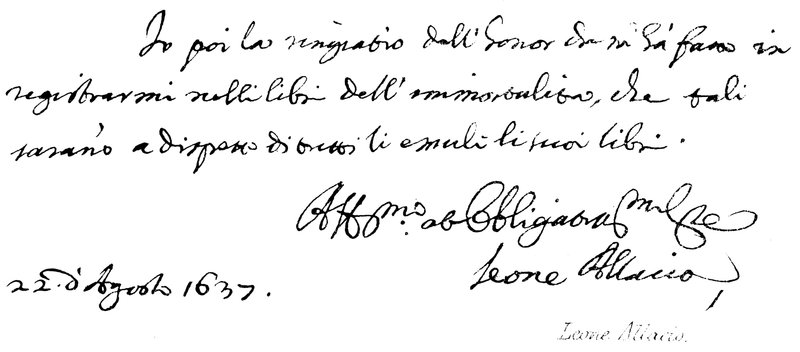 Io poi la ringratio dell'honor che mi ha fatto in
registrarmi nelli libri dell'immortalita, che tali
saranno a dispetto di tutti li emuli li suoi libri.
Aff.mo et Obligatiss.mo
Leone Allacio
22. d'Agosto 1637.
Leone Allacio.